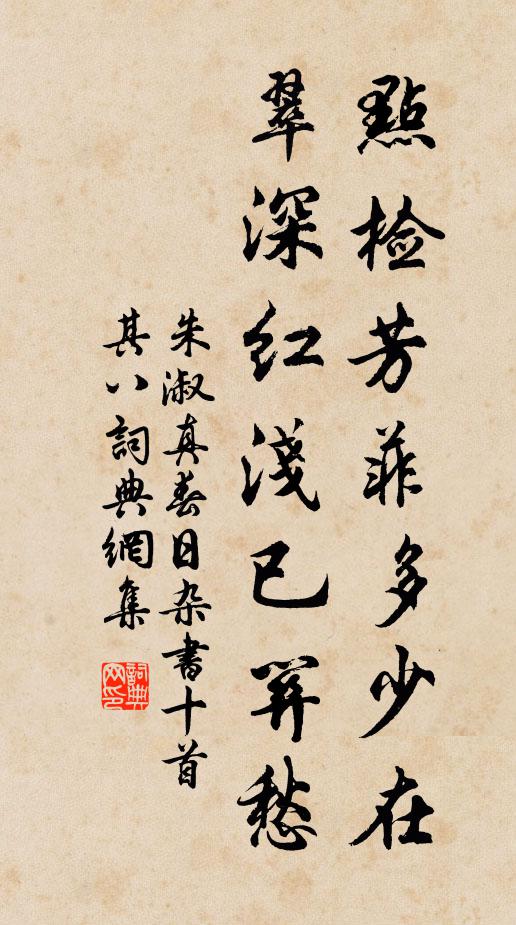 點檢芳菲多少在
翠深紅淺已關愁
朱淑真春日杂書十首
其八詞典網集
詞典网印